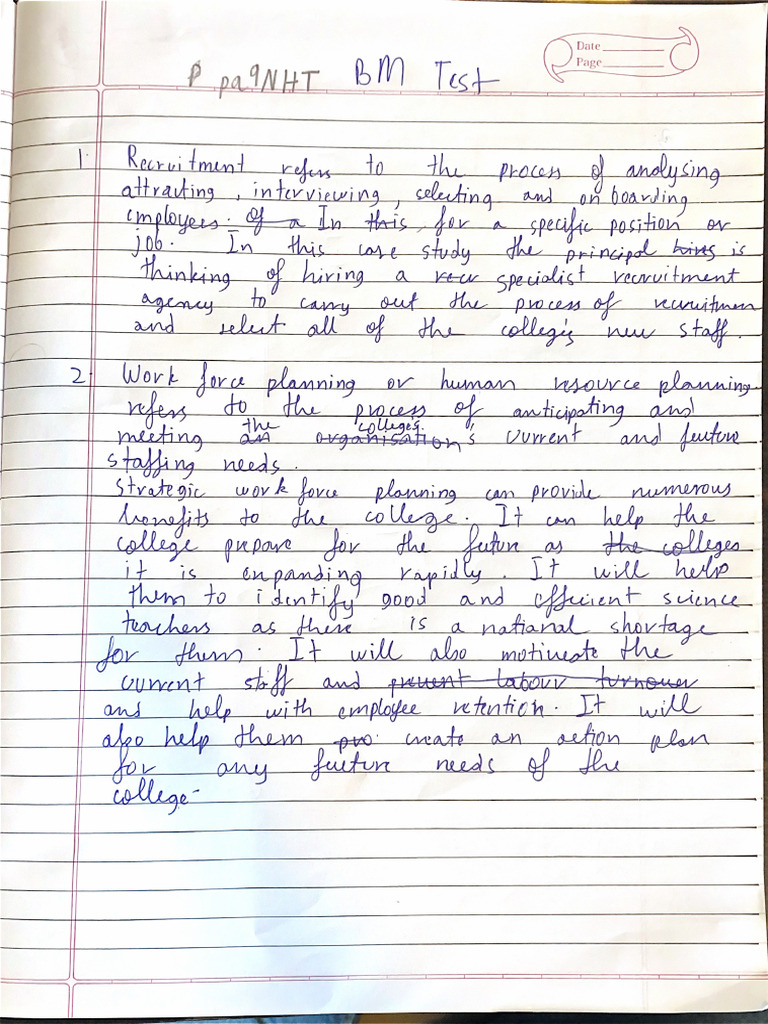 Date
Page
P pa9NHT BM Test
1. Recruitment refers to the process of analysing
attracting, interviewing, selecting and onboarding
employees. of a In this, for a specific position or
job. In this case study the principal hires is
thinking of hiring a specialist recruitment
agency to carry out the process of recruitmen
and select all of the college's new staff.
2. Work force planning or human resource planning
refers to the process of anticipating and
the colleges
meeting an organisation's current and future
staffing needs.
Strategic work force planning can provide numerous
benefits to the college. It can help the
college prepare for the future as the colleges
it is expanding rapidly. It will help
them to identify good and efficient science
teachers as there is a national shortage
for them. It will also motiveate the
current staff and prevent labour turnover
and help with employee retention. It will
also help them pro create an action plan
for any future needs of the
college-